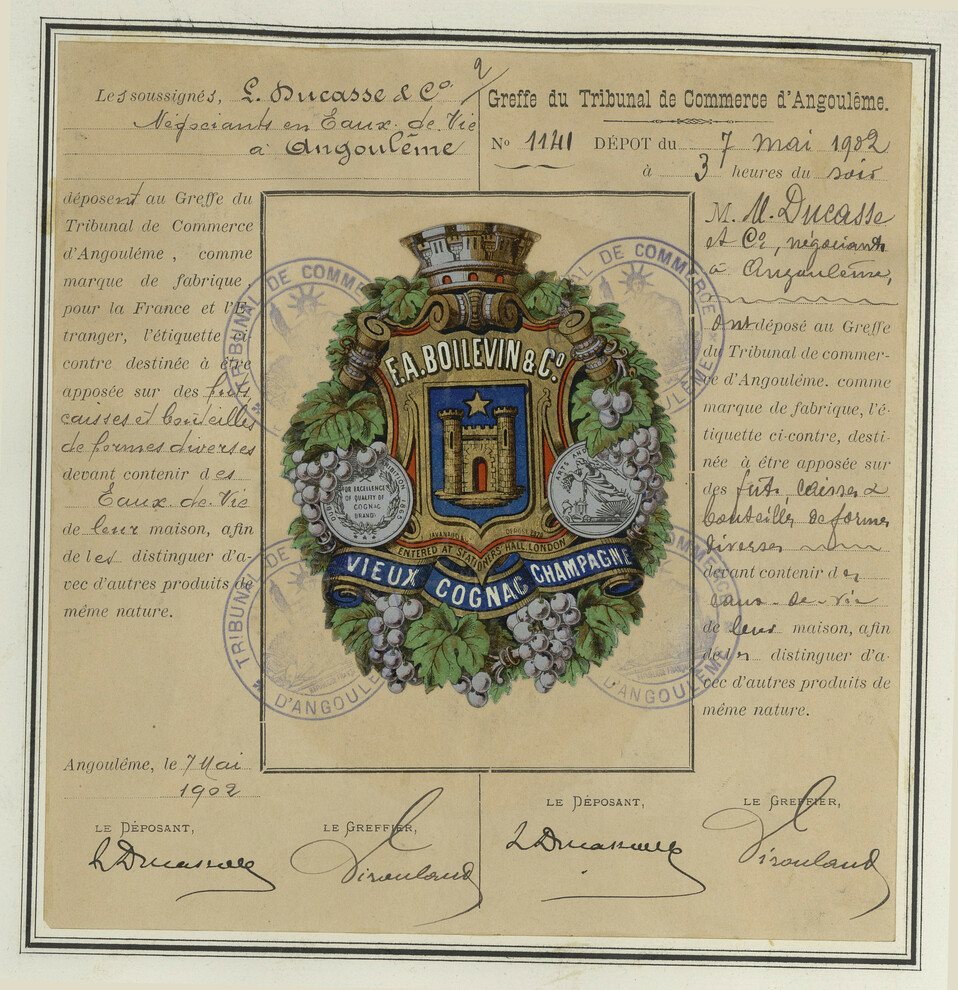 Les soussignés, L. Ducasse & Co
Négociants en Eaux-de-Vie
à Angoulême
déposent au Greffe du
Tribunal de Commerce
d'Angoulême, comme
marque de fabrique,
pour la France et l'E-
tranger, l'étiquette ci-
contre destinée à être
apposée sur des futs
caisses et bouteilles
de formes diverses
devant contenir des
Eaux-de-Vie
de leur maison, afin
de les distinguer d'a-
vec d'autres produits de
même nature.
Angoulême, le 7 Mai
1902
LE DÉPOSANT,
LE GREFFIER,
L Ducasse
Virouland
2
Greffe du Tribunal de Commerce d'Angoulême.
No 1141 DÉPOT du 7 mai 1902
à 3 heures du soir
M. M. Ducasse
et Co, négociants
à Angoulême,
Ont déposé au Greffe
du Tribunal de commer-
ce d'Angoulême. comme
marque de fabrique, l'é-
tiquette ci-contre, desti-
née à être apposée sur
des futs caisses &
bouteilles de formes
diverses
devant contenir des
eaux-de-vie
de leur maison, afin
de les distinguer d'a-
vec d'autres produits de
même nature.
LE DÉPOSANT,
LE GREFFIER,
L Ducasse
Virouland
F.A. BOILEVIN & Co.
EXHIBITION 1865
FOR EXCELLENCE
OF QUALITY OF
COGNAC
BRANDY
ARTS AND
ENTERED AT STATIONERS' HALL LONDON
VIEUX COGNAC CHAMPAGNE
TRIBUNAL DE COMMERCE
TRIBUNAL DE COMMERCE D'ANGOULÊME
TRIBUNAL D'ANGOULÊME
COMMERCE D'ANGOULÊME